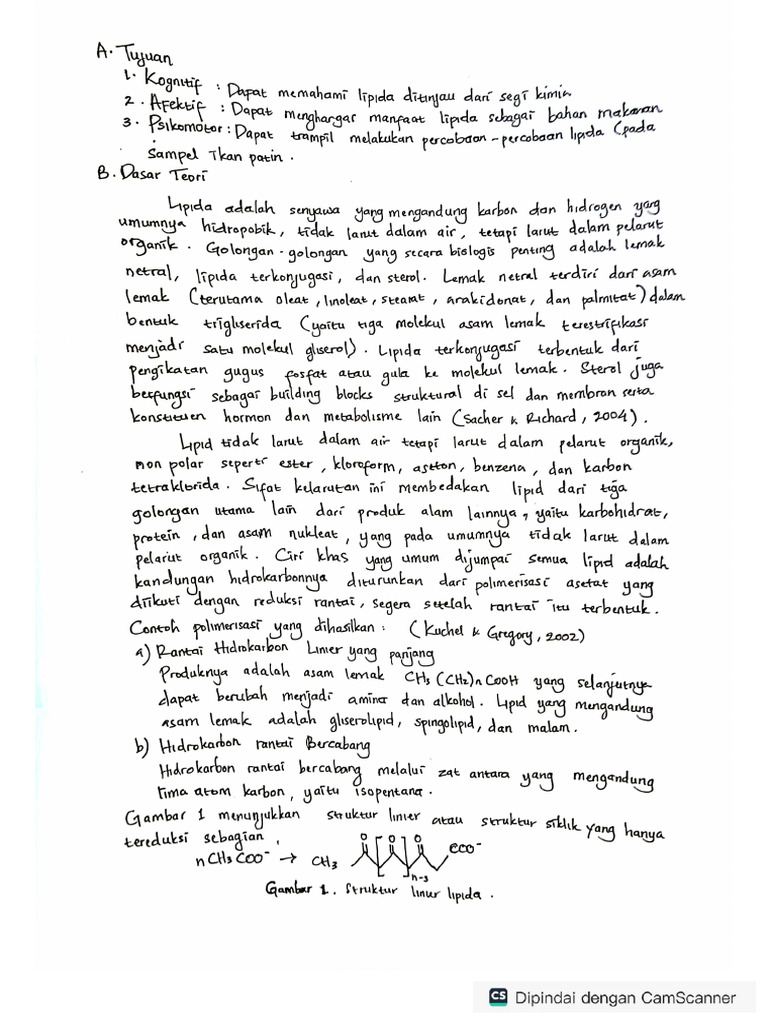 A. Tujuan
1. Kognitif : Dapat memahami lipida ditinjau dari segi kimia.
2. Afektif : Dapat menghargai manfaat lipida sebagai bahan makanan
3. Psikomotor : Dapat trampil melakukan percobaan-percobaan lipida (pada
sampel Ikan patin.
B. Dasar Teori
Lipida adalah senyawa yang mengandung karbon dan hidrogen yang
umumnya hidropobik, tidak larut dalam air, tetapi larut dalam pelarut
organik. Golongan-golongan yang secara biologis penting adalah lemak
netral, lipida terkonjugasi, dan sterol. Lemak netral terdiri dari asam
lemak (terutama oleat, linoleat, stearat, arakidonat, dan palmitat) dalam
bentuk trigliserida (yaitu tiga molekul asam lemak terestrifikasi
menjadi satu molekul gliserol). Lipida terkonjugasi terbentuk dari
pengikatan gugus fosfat atau gula ke molekul lemak. Sterol juga
berfungsi sebagai building blocks struktural di sel dan membran serta
konstituen hormon dan metabolisme lain (Sacher & Richard, 2004).
Lipid tidak larut dalam air tetapi larut dalam pelarut organik,
non polar seperti ester, kloroform, aseton, benzena, dan karbon
tetraklorida. Sifat kelarutan ini membedakan lipid dari tiga
golongan utama lain dari produk alam lainnya, yaitu karbohidrat,
protein, dan asam nukleat, yang pada umumnya tidak larut dalam
pelarut organik. Ciri khas yang umum dijumpai semua lipid adalah
kandungan hidrokarbonnya diturunkan dari polimerisasi asetat yang
diikuti dengan reduksi rantai, segera setelah rantai itu terbentuk.
Contoh polimerisasi yang dihasilkan : (Kuchel & Gregory, 2002)
a) Rantai Hidrokarbon Linier yang panjang
Produknya adalah asam lemak CH3 (CH2)n COOH yang selanjutnya
dapat berubah menjadi amina dan alkohol. Lipid yang mengandung
asam lemak adalah gliserolipid, spingolipid, dan malam.
b) Hidrokarbon rantai Bercabang
Hidrokarbon rantai bercabang melalui zat antara yang mengandung
lima atom karbon, yaitu isopentana.
Gambar 1 menunjukkan struktur linier atau struktur siklik yang hanya
tereduksi sebagian.
nCH3COO- → CH3 O [O O]n-3 eco-
Gambar 1. Struktur linur lipida.
CS Dipindai dengan CamScanner